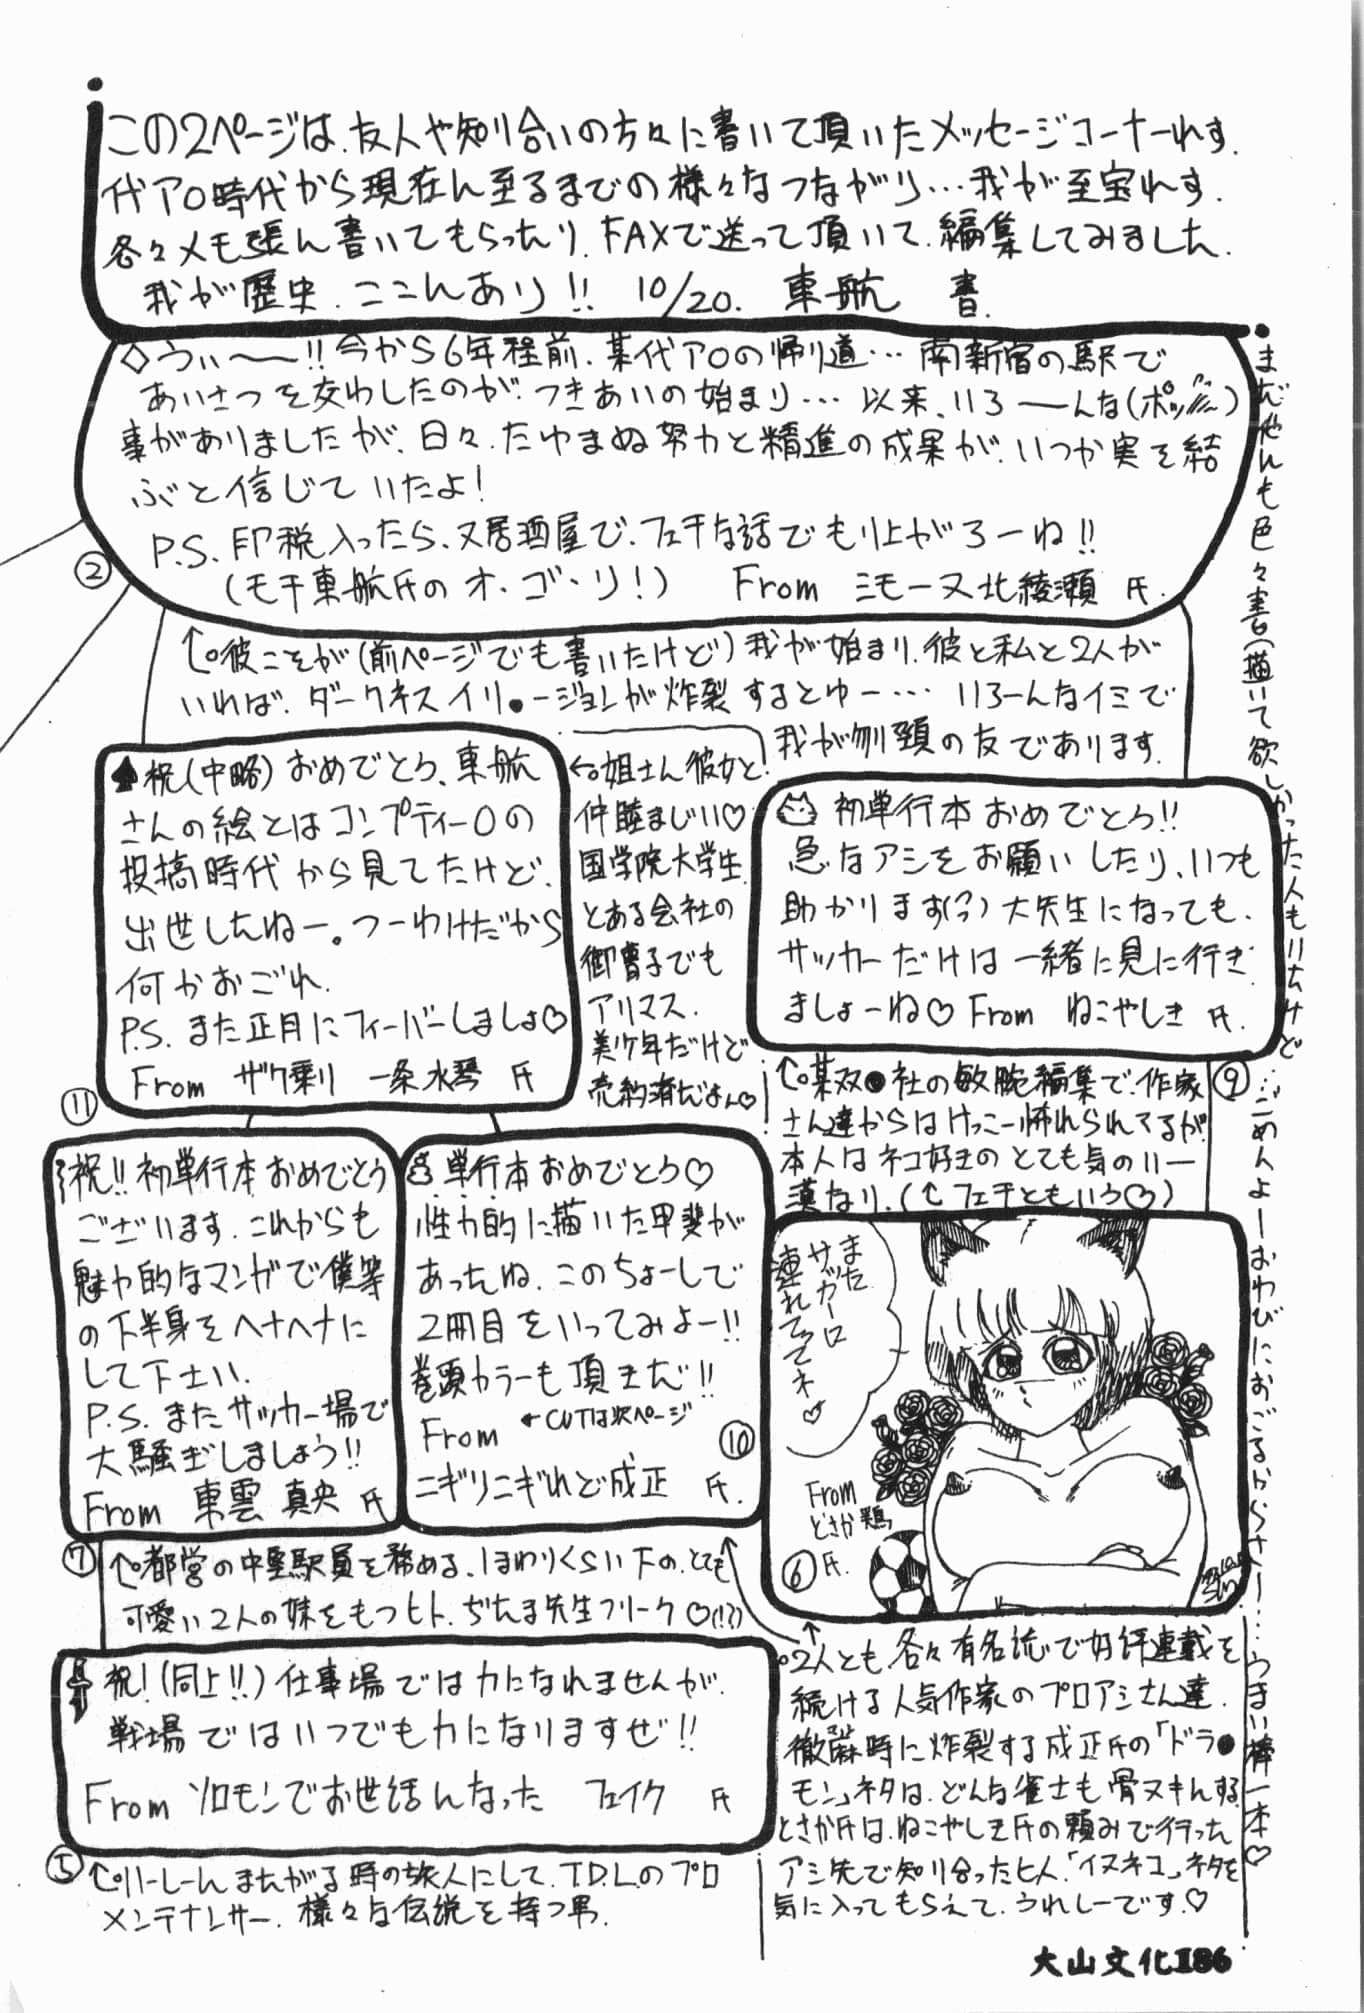 この2ページは、友人や知り合いの方々に書いて頂いたメッセージコーナーれす。
代アO時代から現在ん至るまでの様々なつながり…我が至宝れす.
各々メモ張ん書いてもらったり、FAXで送って頂いて、編集してみました.
我が歴史、ここんあり!! 10/20. 東航 書.
◇うぃ〜〜!! 今から6年程前、某代アOの帰り道…南新宿の駅で
あいさつを交わしたのが、つきあいの始まり…以来、いろーーんな(ポッ)
事がありましたが、日々、たゆまぬ努力と精進の成果が、いつか実を結
ぶと信じていたよ!
P.S. 印税入ったら、又居酒屋で、フェチな話でもり上がろーね!!
(モチ東航氏のオ・ゴ・リ!) From ミモーヌ北綾瀬 氏.
②
↑彼こそが(前ページでも書いたけど)我が始まり、彼と私と2人が
いれば、ダークネスイリ●ージョンが炸裂するとゆー… いろーんなイミで
我が刎頸の友であります.
まだやんも色々書(描)いて欲しかった人もいたけど…ごめんよーおわびにおごるからさー…うまい棒一本♡
♠祝(中略)おめでとう、東航
さんの絵とはコンプティーOの
投稿時代から見てたけど、
出世したねー。つーわけだから
何かおごれ.
P.S. また正月にフィーバーしましょ♡
From ザク乗り 一条水琴 氏
⑪
←姐さん彼女と
仲睦まじい♡
国学院大学生.
とある会社の
御曹子でも
アリマス.
美少年だけど
売約済だよん♡
初単行本おめでとう!!
急なアシをお願いしたり、いつも
助かります(?) 大先生になっても、
サッカーだけは一緒に見に行き
ましょーね♡ From ねこやしき 氏.
⑨
↑某双●社の敏腕編集で、作家
さん達からはけっこー怖れられてるが、
本人はネコ好きのとても気のいー
漢なり.(↑フェチともいう♡)
祝!! 初単行本おめでとう
ございます.これからも
魅力的なマンガで僕等
の下半身をヘナヘナに
して下さい.
P.S. またサッカー場で
大騒ぎしましょう!!
From 東雲 真央 氏
⑦
単行本おめでとう♡
性力的に描いた甲斐が
あったね.このちょーしで
2冊目をいってみよー!!
巻頭カラーも頂きだ!!
From ←CUTは次ページ
ニギリニギれど成正 氏.
⑩
また
サッカーに
連れてってネ♡
From
どさか鶏
氏.
⑥
↑都営の中堅駅員を務める、1まわりくらい下の、とても
可愛い2人の妹をもつヒト.ぢたま先生フリーク♡(!?)
祝!(同上!!)仕事場では力になれませんが、
戦場ではいつでも力になりますぜ!!
From ソロモンでお世話んなった フェイク 氏
⑤
↑ハーレーんまたがる時の旅人にして、T.D.L.のプロ
メンテナンサー、様々な伝説を持つ男.
↑2人とも、各々有名誌で好評連載を
続ける人気作家のプロアシさん達.
徹麻時に炸裂する成正氏の「ドラ●
モン」ネタは、どんな雀士も骨ヌキんする.
とさか氏は、ねこやしき氏の頼みで行った
アシ先で知り合ったヒト.「イヌネコ」ネタを
気に入ってもらえて、うれしーです.♡
大山文化Ⅱ86